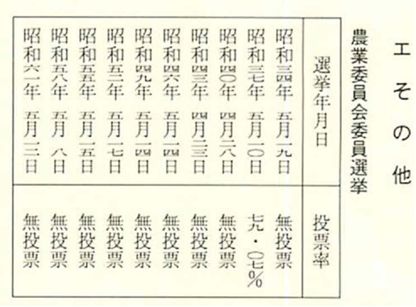 エ その他
農業委員会委員選挙
選挙年月日 投票率
昭和三四年 五月一九日 無投票
昭和三七年 五月一〇日 七九・〇七%
昭和四〇年 四月二八日 無投票
昭和四三年 四月二三日 無投票
昭和四六年 五月一四日 無投票
昭和四九年 五月一四日 無投票
昭和五二年 五月一七日 無投票
昭和五五年 五月一五日 無投票
昭和五八年 五月 八日 無投票
昭和六一年 五月一三日 無投票